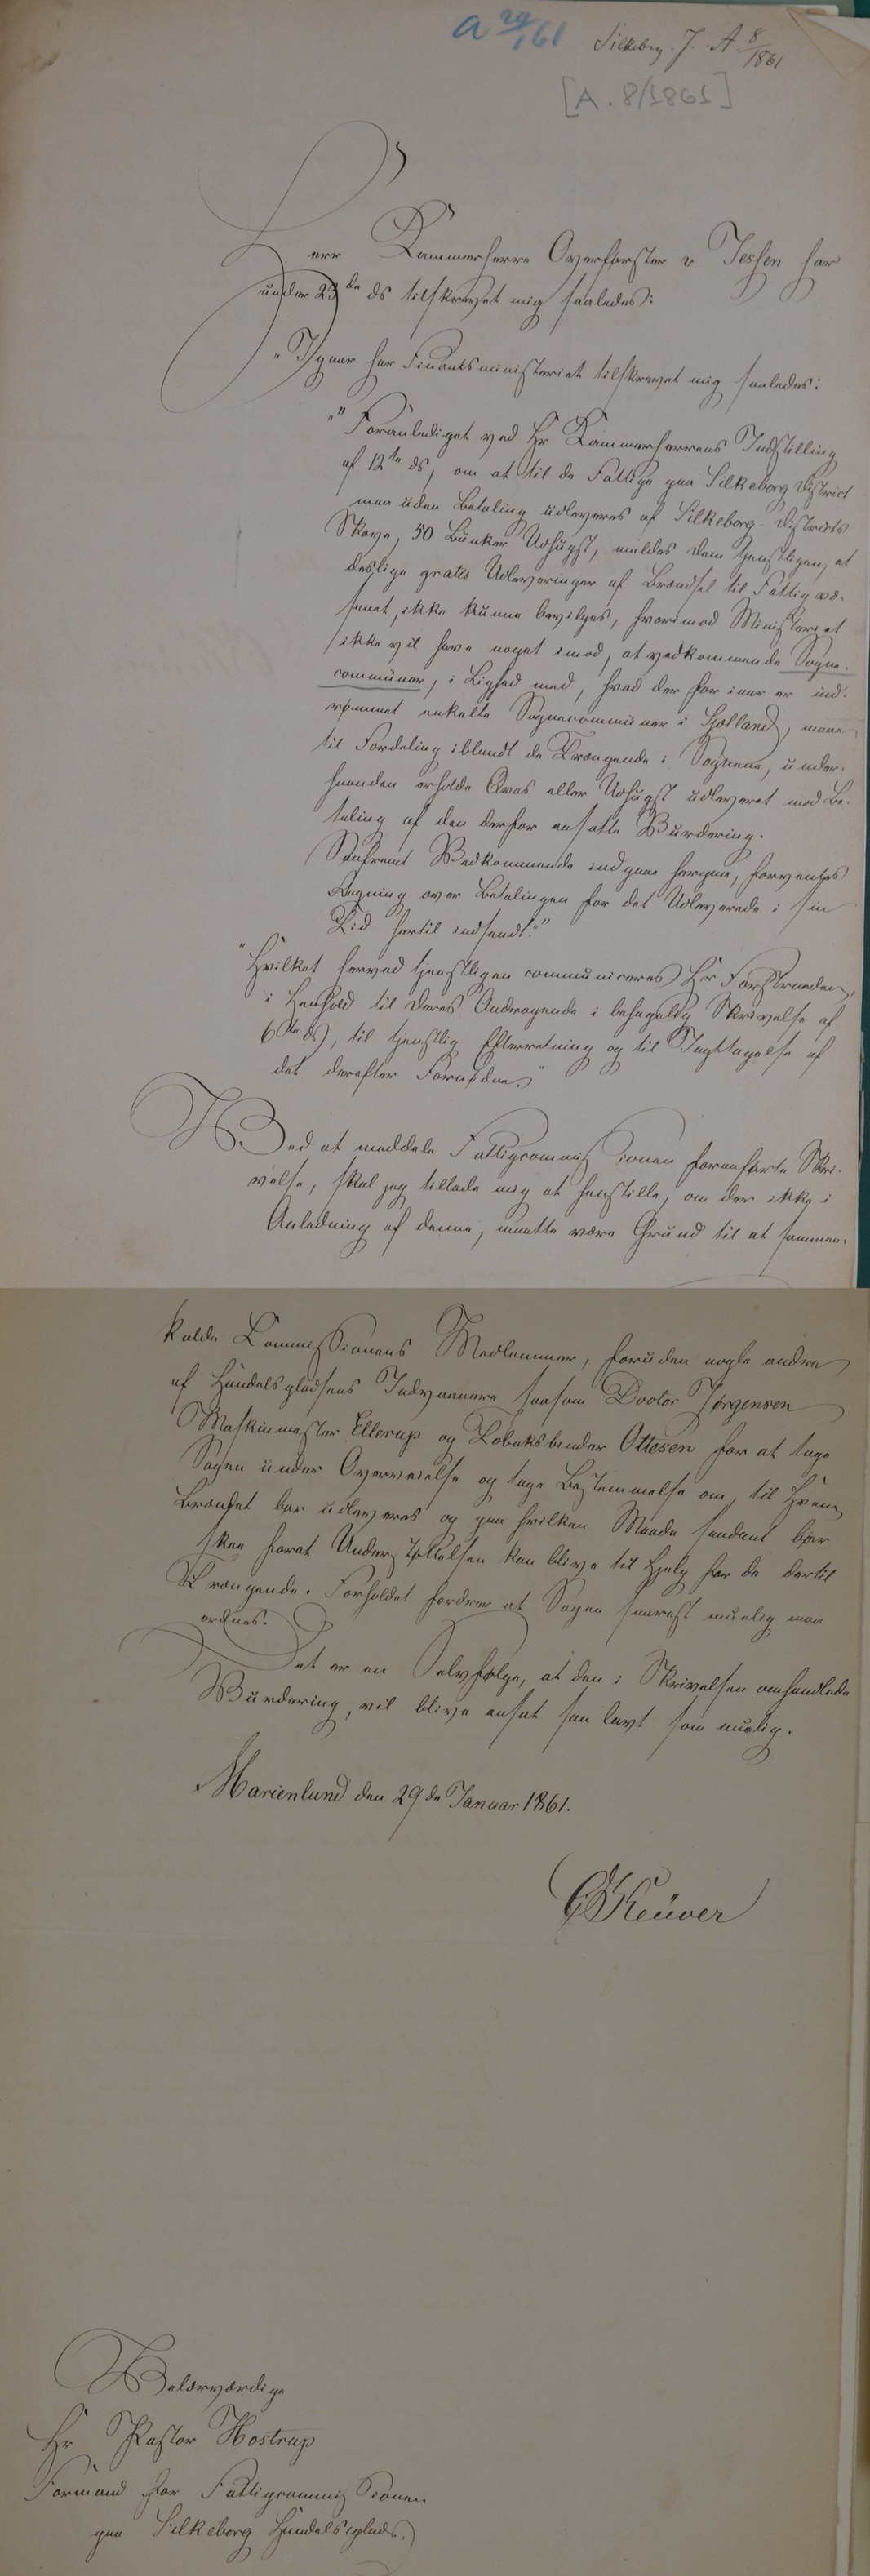 a 29/1 61
Silkeborg. J. A 8/1861
[A. 8/1861]
Herr Kammerherre Overførster v Jessen har
under 23de ds tilskrevet mig saaledes:
"Igaar har Finantsministeriet tilskrevet mig saaledes:
""Foranlediget ved Hr Kammerherrens Indstilling
af 12te ds, om at til de Fattige paa Silkeborg District
maa uden Betaling udleveres af Silkeborg-Districts
Skove, 50 Bunker Udhugst, meldes dem tjenstligen, at
deslige gratis Udleveringer af Brændsel til Fattigvæ-
senet, ikke kunne bevilges, hvorimod Ministeriet
ikke vil have noget imod, at vedkommende Sogne-
communer, i Lighed med, hvad der for iaar er ind-
rømmet enkelte Sognecommuner i Sjælland, maae
til Fordeling iblandt de Trængende i Sognene, under-
haanden erholde Qvas eller Udhugst udleveret mod Be-
taling af den derfor ansatte Vurdering.
Saafremt Vedkommende indgaae herpaa, forventes
Regning over Betalingen for det Udleverede i sin
Tid hertil indsendt.""
"Hvilket herved tjenstligen communiceres Hr Forstraaden,
i Henhold til Deres Andragende i behagelig Skrivelse af
6te ds, til tjenstlig Efterretning og til Iagttagelse af
det derefter Fornødne."
Ved at meddele Fattigcommissionen foranførte Skri-
velse, skal jeg tillade mig at henstille, om der ikke i
Anledning af denne, maatte være Grund til at sammen-
kalde Commissionens Medlemmer, foruden nogle andre
af Handelspladsens Indvaanere saasom Doctor Jørgensen
Maskinmester Ellerup og Tobaksbinder Ottesen for at tage
Sagen under Overveielse og tage Bestemmelse om, til Hvem
Brændet bør udleveres og paa hvilken Maade saadant bør
skee forat Understøttelsen kan blive til Hjelp for de dertil
Trængende. Forholdet fordrer at Sagen snarest muelig maa
ordnes.
Det er en Selvfølge, at den i Skrivelsen omhandlede
Vurdering, vil blive ansat saa lavt som muelig.
Marienlund den 29de Januar 1861.
Velærværdige
Hr Pastor Hostrup
Formand for Fattigcommissionen
paa Silkeborg Handelsplads.